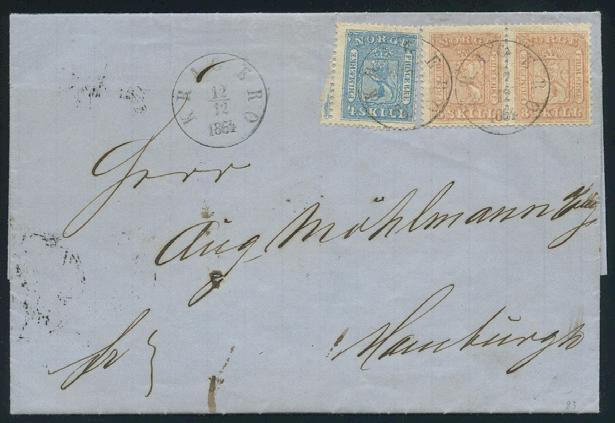 NORGE NORGE NORGE
FRIMÆRKE FRIMÆRKE
4 SKILL 8 SKILL 8 SKILL
KRAGERØ
12
12
1864
Herr
Aug Möhlmann
Hamburgh
fr
23